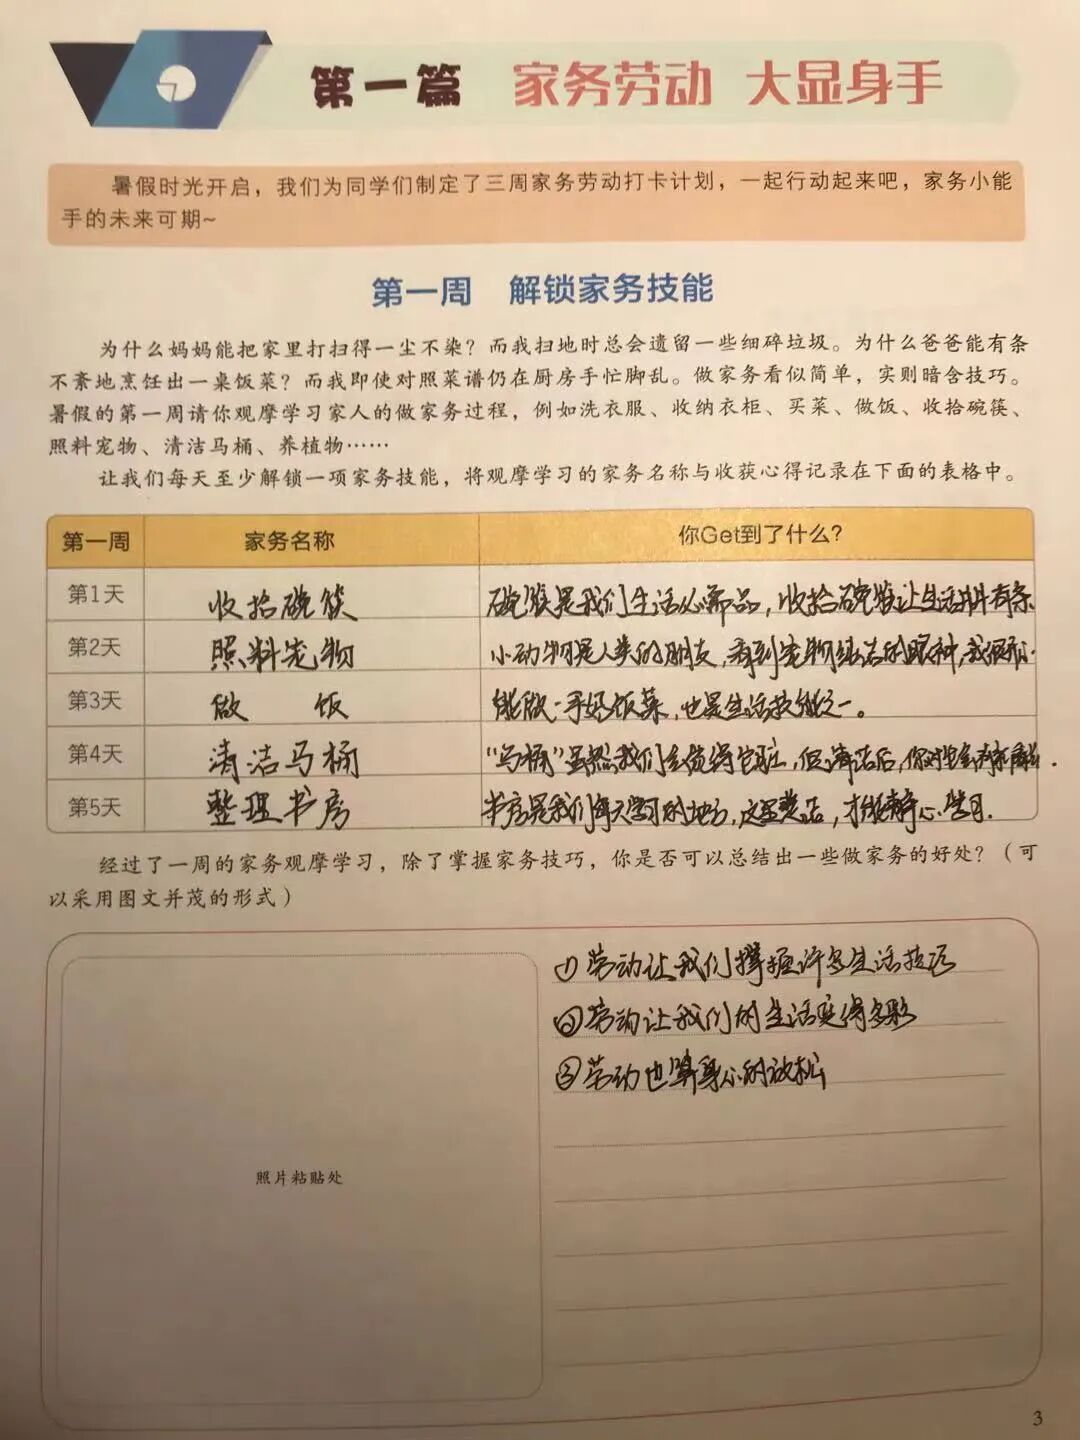 第一篇 家务劳动 大显身手
暑假时光开启，我们为同学们制定了三周家务劳动打卡计划，一起行动起来吧，家务小能
手的未来可期~
第一周 解锁家务技能
为什么妈妈能把家里打扫得一尘不染？而我扫地时总会遗留一些细碎垃圾。为什么爸爸能有条
不紊地烹饪出一桌饭菜？而我即使对照菜谱仍在厨房手忙脚乱。做家务看似简单，实则暗含技巧。
暑假的第一周请你观摩学习家人的做家务过程，例如洗衣服、收纳衣柜、买菜、做饭、收拾碗筷、
照料宠物、清洁马桶、养植物……
让我们每天至少解锁一项家务技能，将观摩学习的家务名称与收获心得记录在下面的表格中。
第一周 家务名称 你Get到了什么？
第1天 收拾碗筷 碗筷是我们生活必需品，收拾碗筷让生活井井有条.
第2天 照料宠物 小动物是人类的朋友，看到宠物纯洁的眼神，我很开心.
第3天 做 饭 能做一手好饭菜，也是生活技能之一。
第4天 清洁马桶 “马桶”虽然我们会觉得它脏，但清洁后，你对它会有
第5天 整理书房 书房是我们每天学习的地方，这里整洁，才能静心学习.
经过了一周的家务观摩学习，除了掌握家务技巧，你是否可以总结出一些做家务的好处？（可
以采用图文并茂的形式）
①劳动让我们撑握许多生活技巧
②劳动让我们的生活变得多彩
③劳动也算身心的放松
照片粘贴处
3